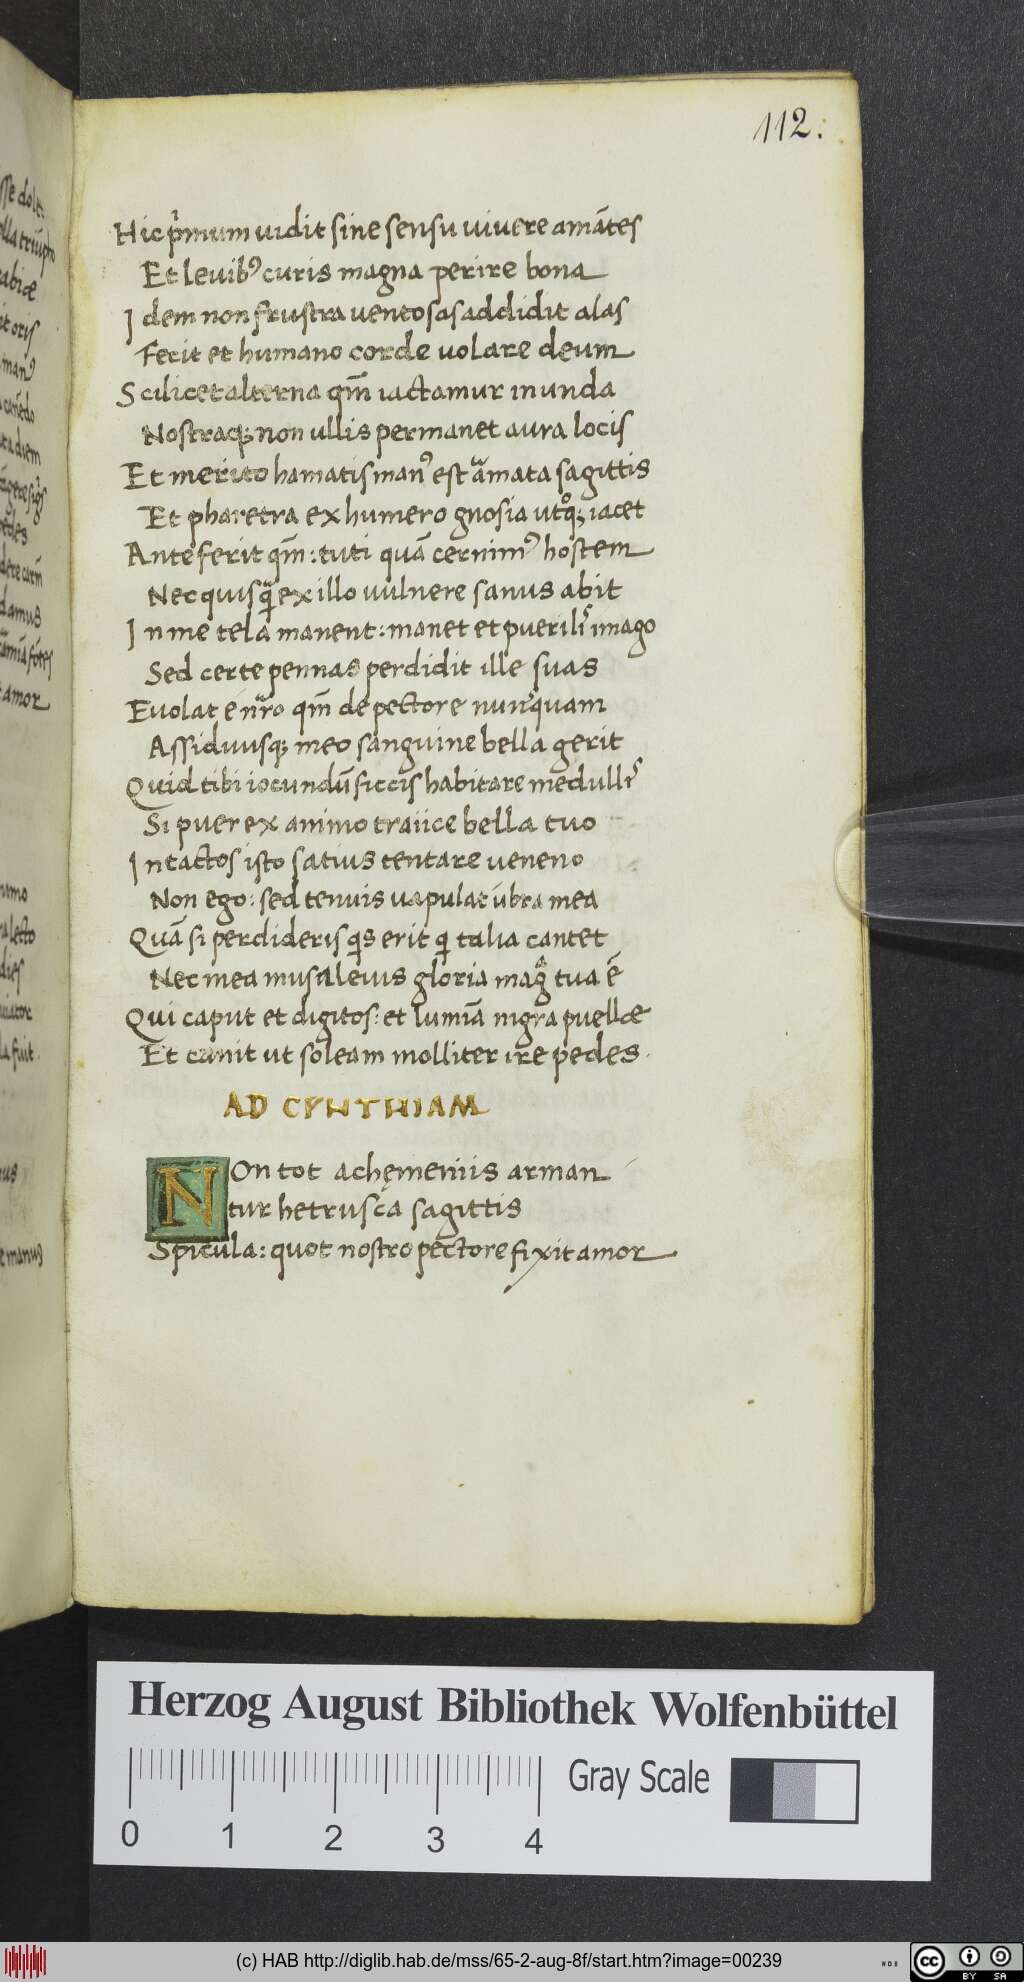 112.
Hic p̄rmum uidit sine sensu uiuere amātes
Et leuibꝰ curis magna perire bona
Idem non frustra uentosas addidit alas
Fecit et humano corde uolare deum
Scilicet alterna qm̄ iactamur in unda
Nostraqꝫ non ullis permanet aura locis
Et merito hamatis manꝰ est amata sagittis
Et pharetra ex humero gnosia utqꝫ iacet
Ante ferit qm̄: tuti quā cernimꝰ hostem
Nec quisq̄ ex illo uulnere sanus abit
In me tela manent: manet et puerilis imago
Sed certe pennas perdidit ille suas
Euolat ē nr̄o qm̄ de pectore nunquam
Assiduusqꝫ meo sanguine bella gerit
Quid tibi iocundū siccis habitare medullis
Si puer ex animo traiice bella tuo
Intactos isto satius tentare ueneno
Non ego: sed tenuis uapulat ūbra mea
Quā si perdideris qs erit q talia cantet
Nec mea musa leuis gloria mag tua ē
Qui caput et digitos: et lumīa nigra puellæ
Et canit ut soleam molliter ire pedes.
AD CYNTHIAM
NOn tot achęmeniis arman
tur hetrusca sagittis
Spicula: quot nostro pectore fixit amor
Herzog August Bibliothek Wolfenbüttel
0 1 2 3 4
Gray Scale
(c) HAB http://diglib.hab.de/mss/65-2-aug-8f/start.htm?image=00239
cc BY SA